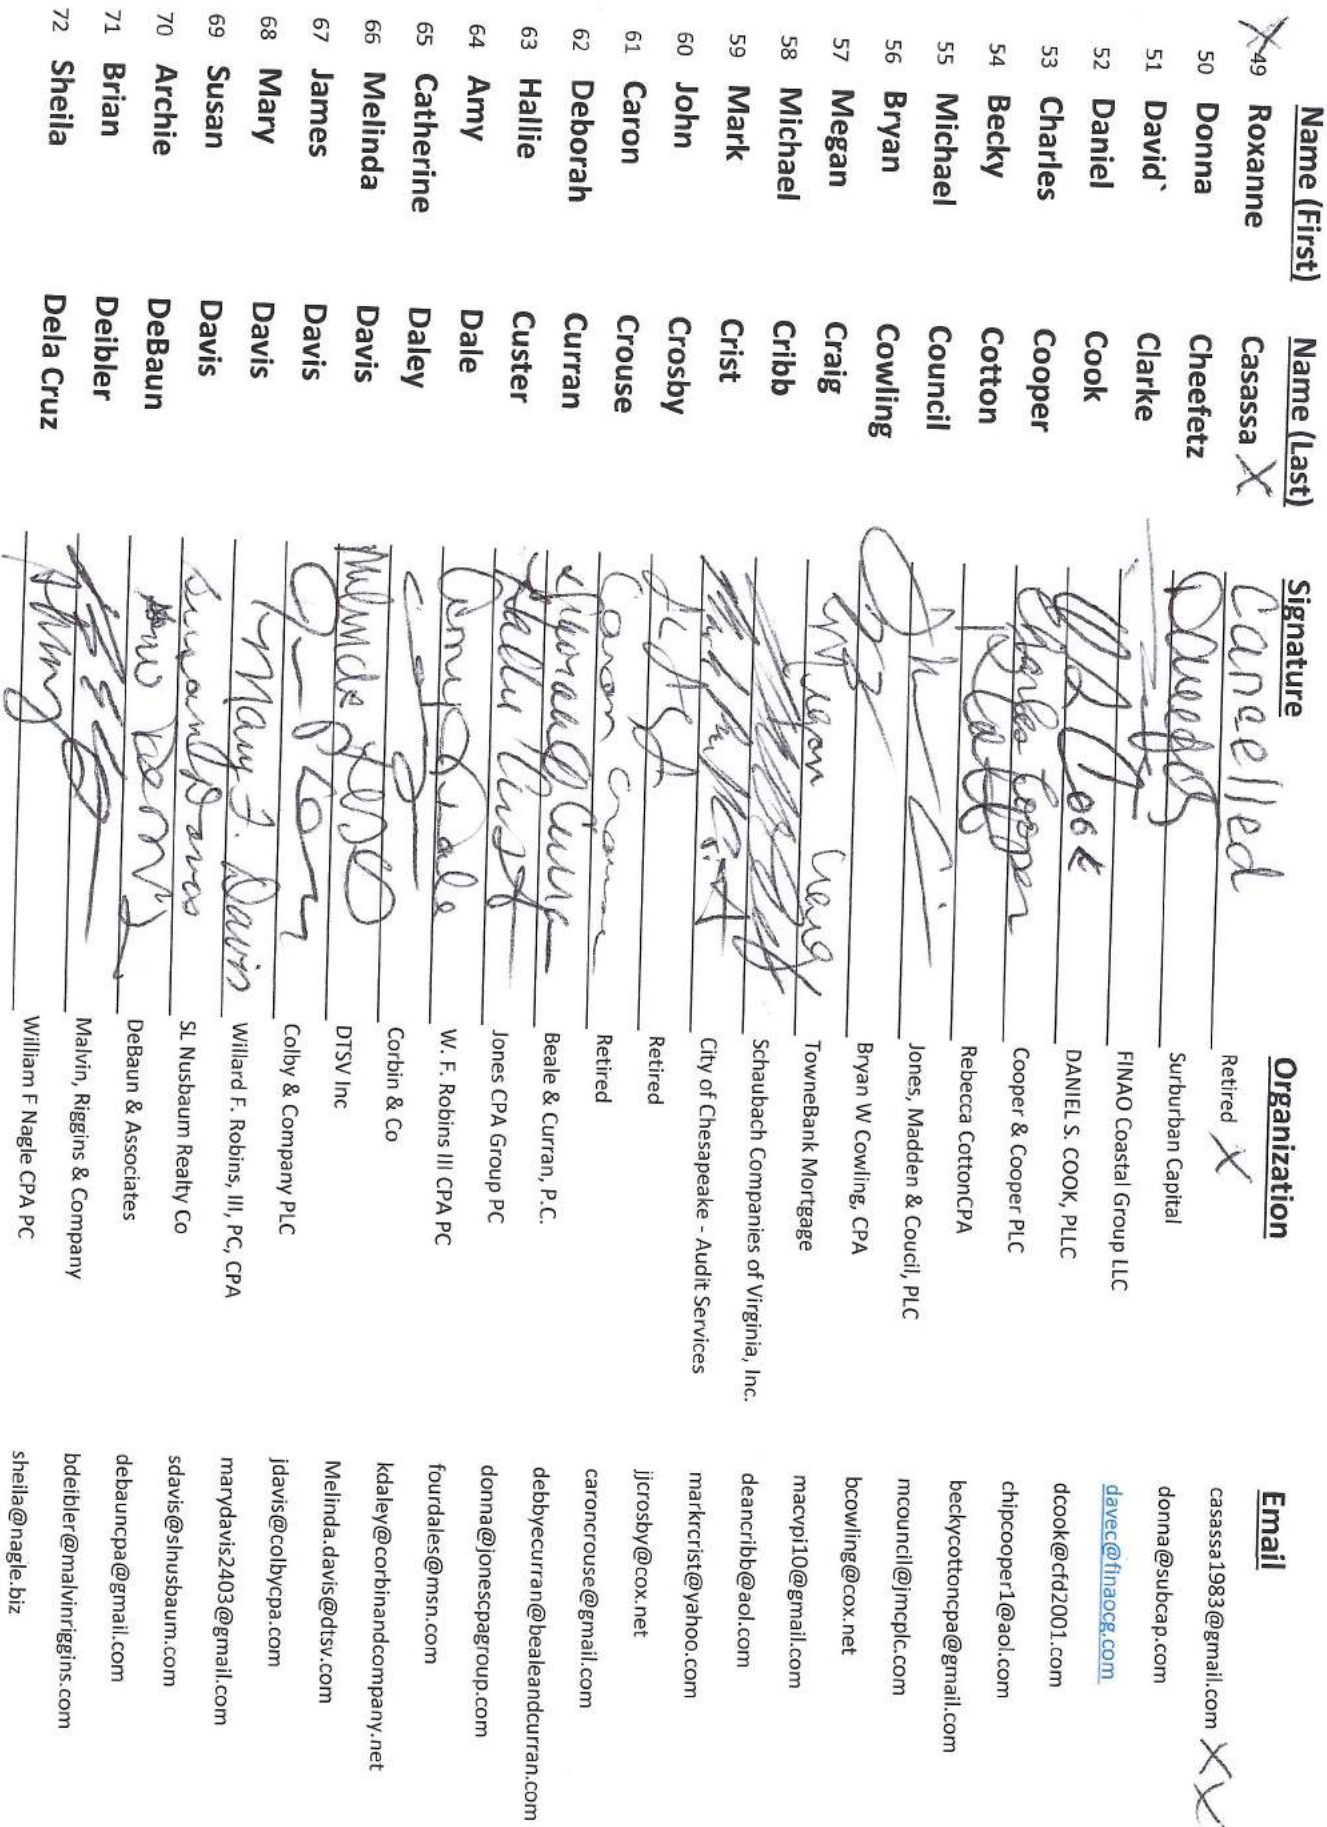 Name (First) Name (Last) Signature Organization Email
X 49 Roxanne Casassa X Cancelled Retired X casassa1983@gmail.com XX
50 Donna Cheefetz Surburban Capital donna@subcap.com
51 David` Clarke FINAO Coastal Group LLC davec@finaocg.com
52 Daniel Cook DANIEL S. COOK, PLLC dcook@cfd2001.com
53 Charles Cooper Charles Cooper Cooper & Cooper PLC chipcooper1@aol.com
54 Becky Cotton Rebecca CottonCPA beckycottoncpa@gmail.com
55 Michael Council Jones, Madden & Coucil, PLC mcouncil@jmcplc.com
56 Bryan Cowling Bryan W Cowling, CPA bcowling@cox.net
57 Megan Craig Megan Craig TowneBank Mortgage macvpi10@gmail.com
58 Michael Cribb Schaubach Companies of Virginia, Inc. deancribb@aol.com
59 Mark Crist City of Chesapeake - Audit Services markrcrist@yahoo.com
60 John Crosby Retired jjcrosby@cox.net
61 Caron Crouse Caron Crouse Retired caroncrouse@gmail.com
62 Deborah Curran Deborah E Curran Beale & Curran, P.C. debbyecurran@bealeandcurran.com
63 Hallie Custer Hallie Custer Jones CPA Group PC donna@jonescpagroup.com
64 Amy Dale Amy Dale W. F. Robins III CPA PC fourdales@msn.com
65 Catherine Daley Corbin & Co kdaley@corbinandcompany.net
66 Melinda Davis Melinda DTSV Inc Melinda.davis@dtsv.com
67 James Davis Colby & Company PLC jdavis@colbycpa.com
68 Mary Davis Mary F. Davis Willard F. Robins, III, PC, CPA marydavis2403@gmail.com
69 Susan Davis Davis SL Nusbaum Realty Co sdavis@slnusbaum.com
70 Archie DeBaun DeBaun & Associates debauncpa@gmail.com
71 Brian Deibler Malvin, Riggins & Company bdeibler@malvinriggins.com
72 Sheila Dela Cruz William F Nagle CPA PC sheila@nagle.biz